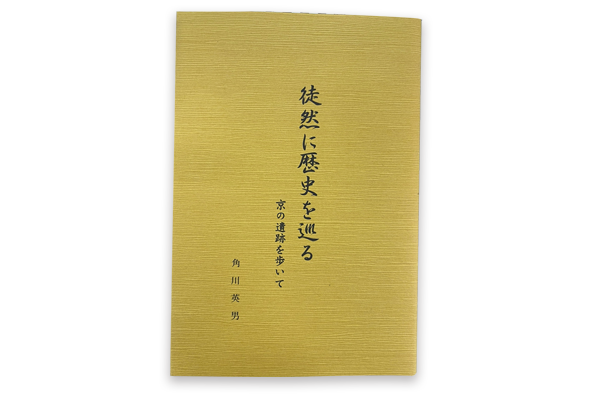 徒然に歴史を巡る
京の遺跡を歩いて
角川英男